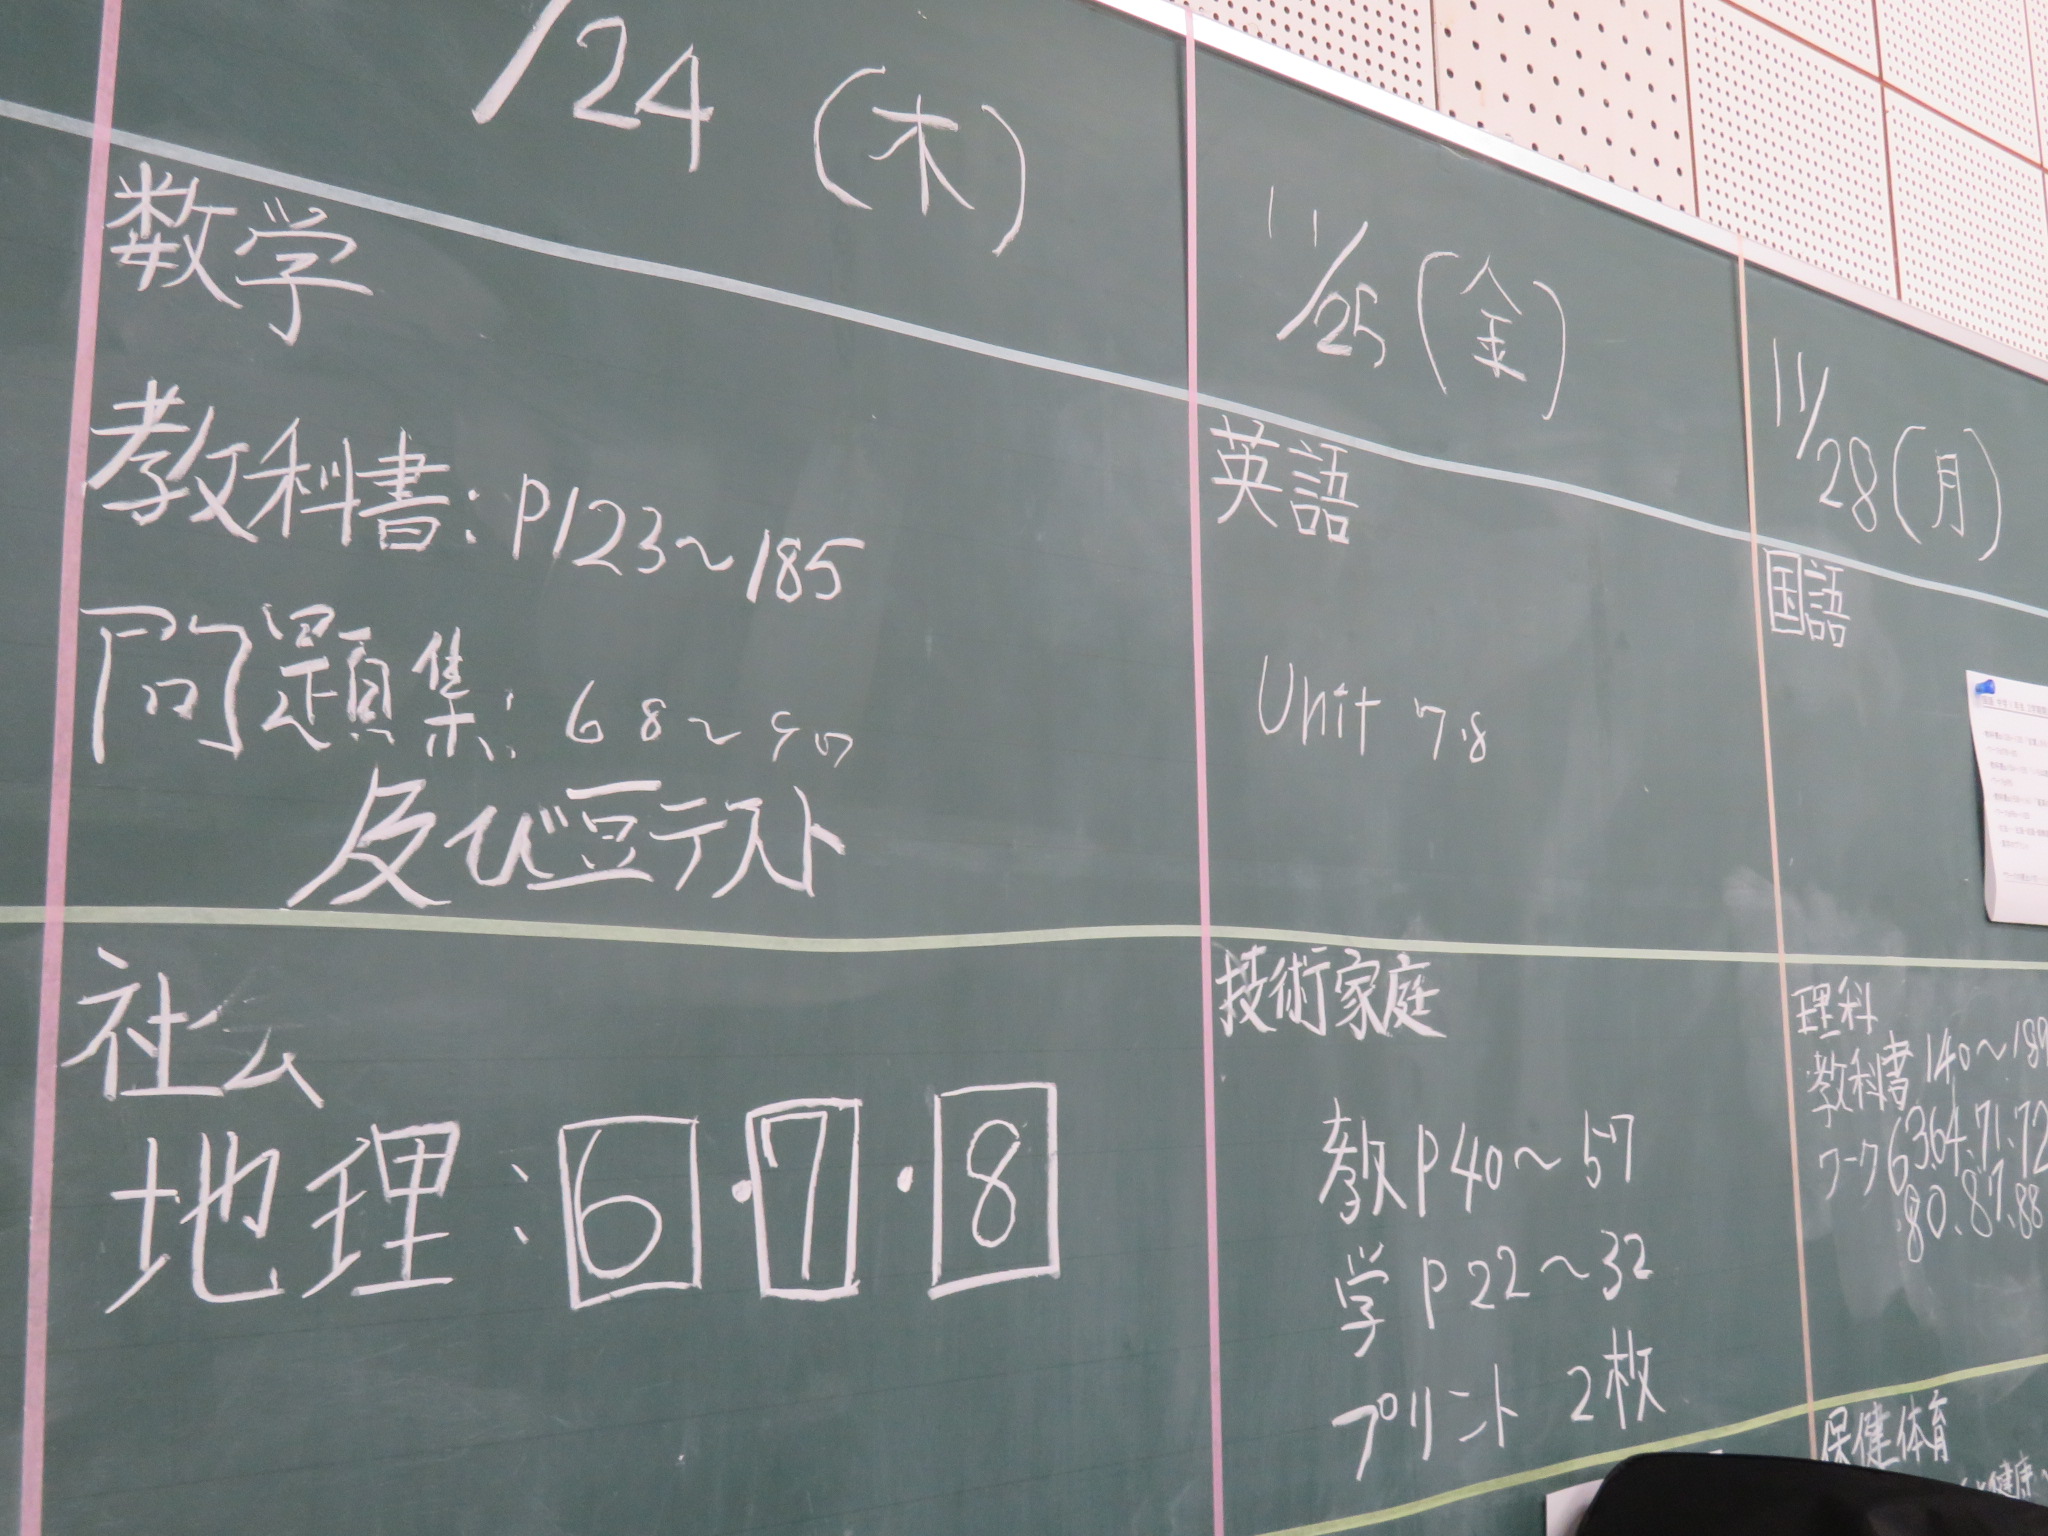 /24 (木)
数学
教科書:P123~185
問題集:68~97
及び豆テスト
社会
地理:6・7・8
11/25(金)
英語
Unit 7.8
技術家庭
教P40~57
学P22~32
プリント 2枚
11/28(月)
国語
理科
教科書140~189
ワーク63.64.71.72
.80.87.88
保健体育
健康